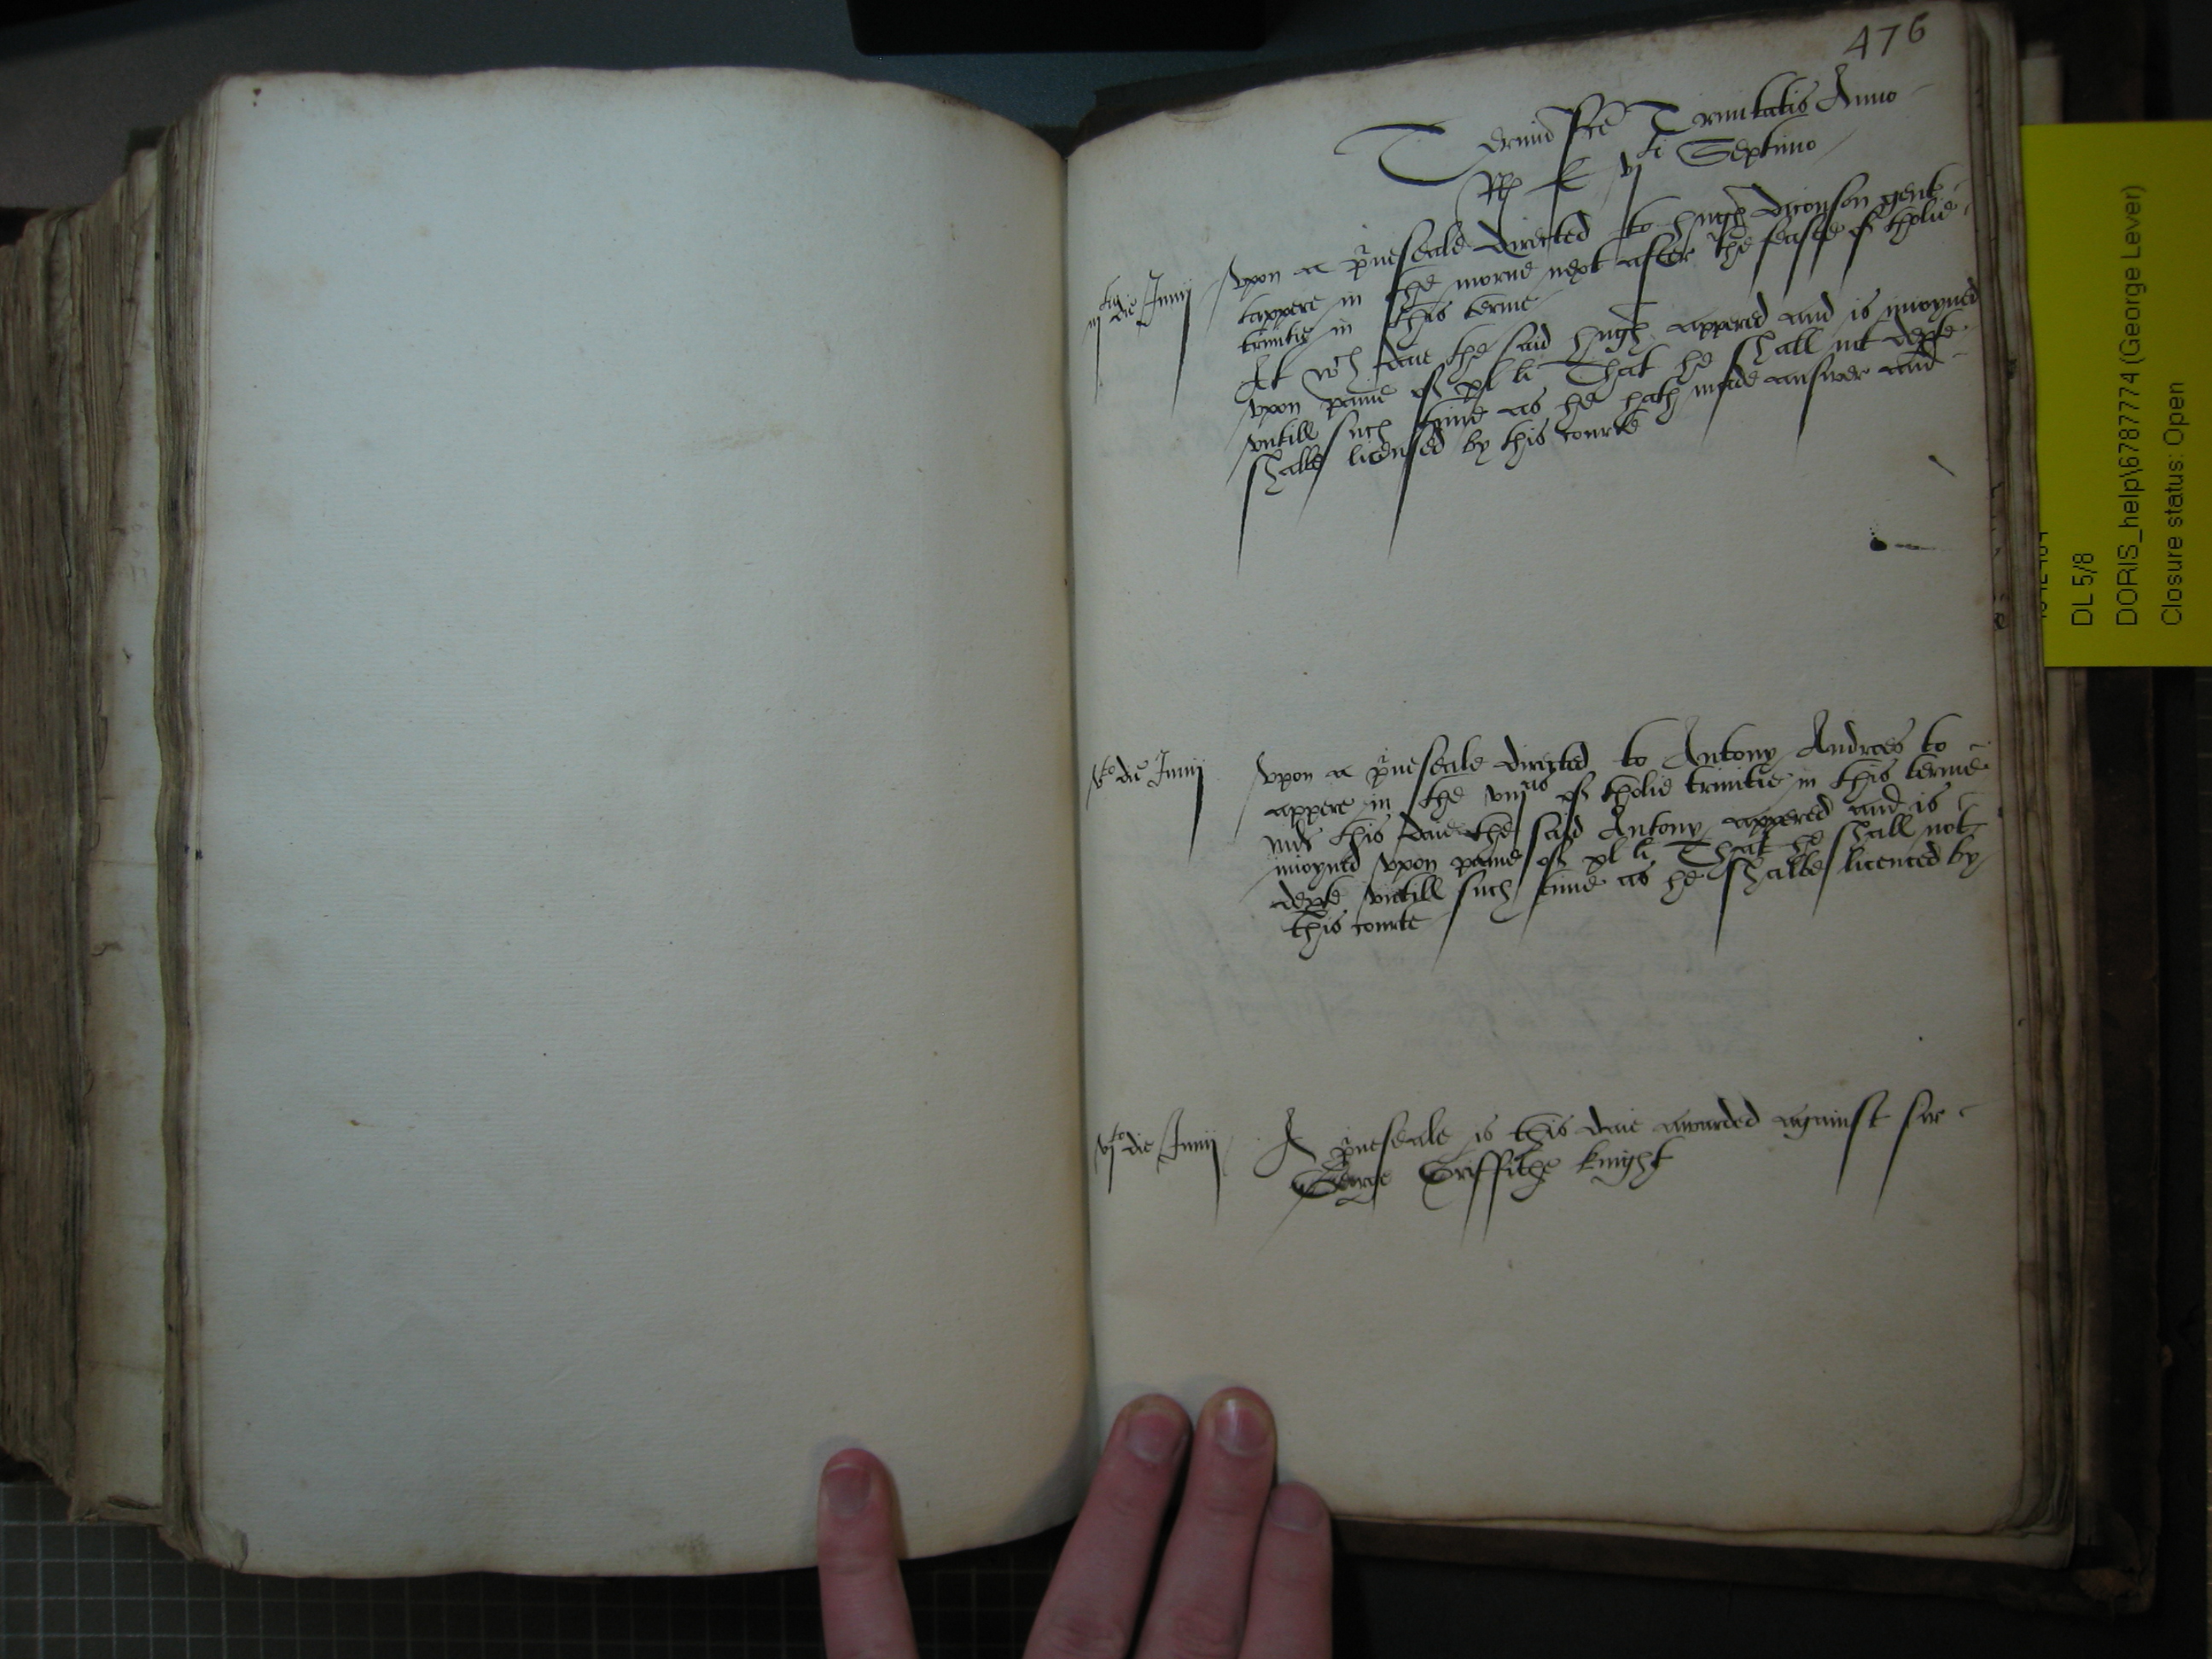 476
Termino Sce Trinitatis Anno
RR E vjti Septimo
iijcio die Junij
Upon a p'ueseale directed to hugh diconson gent
tappere in the morne next after the feaste of tholie
trinitie in this terme
At wch daie the said hugh appered and is inioyned
upon paine of xl li That he shall not dep'te
untill such time as he hath made answer and
shalbe licensed by this courte
vto die Junij
Upon a p'ueseale directed to Antony Andrees to
appere in the of tholie trinitie in this terme
this daie the said Antony appered and is
inioyned upon paine of xl li That he shall not
dep'te untill such time as he shalbe licenced by
this courte
vjto die Junij
A p'ueseale is this daie awarded against sir
George Griffithe knight
DL 5/8
DORIS_help\678774 (George Lever)
Closure status: Open